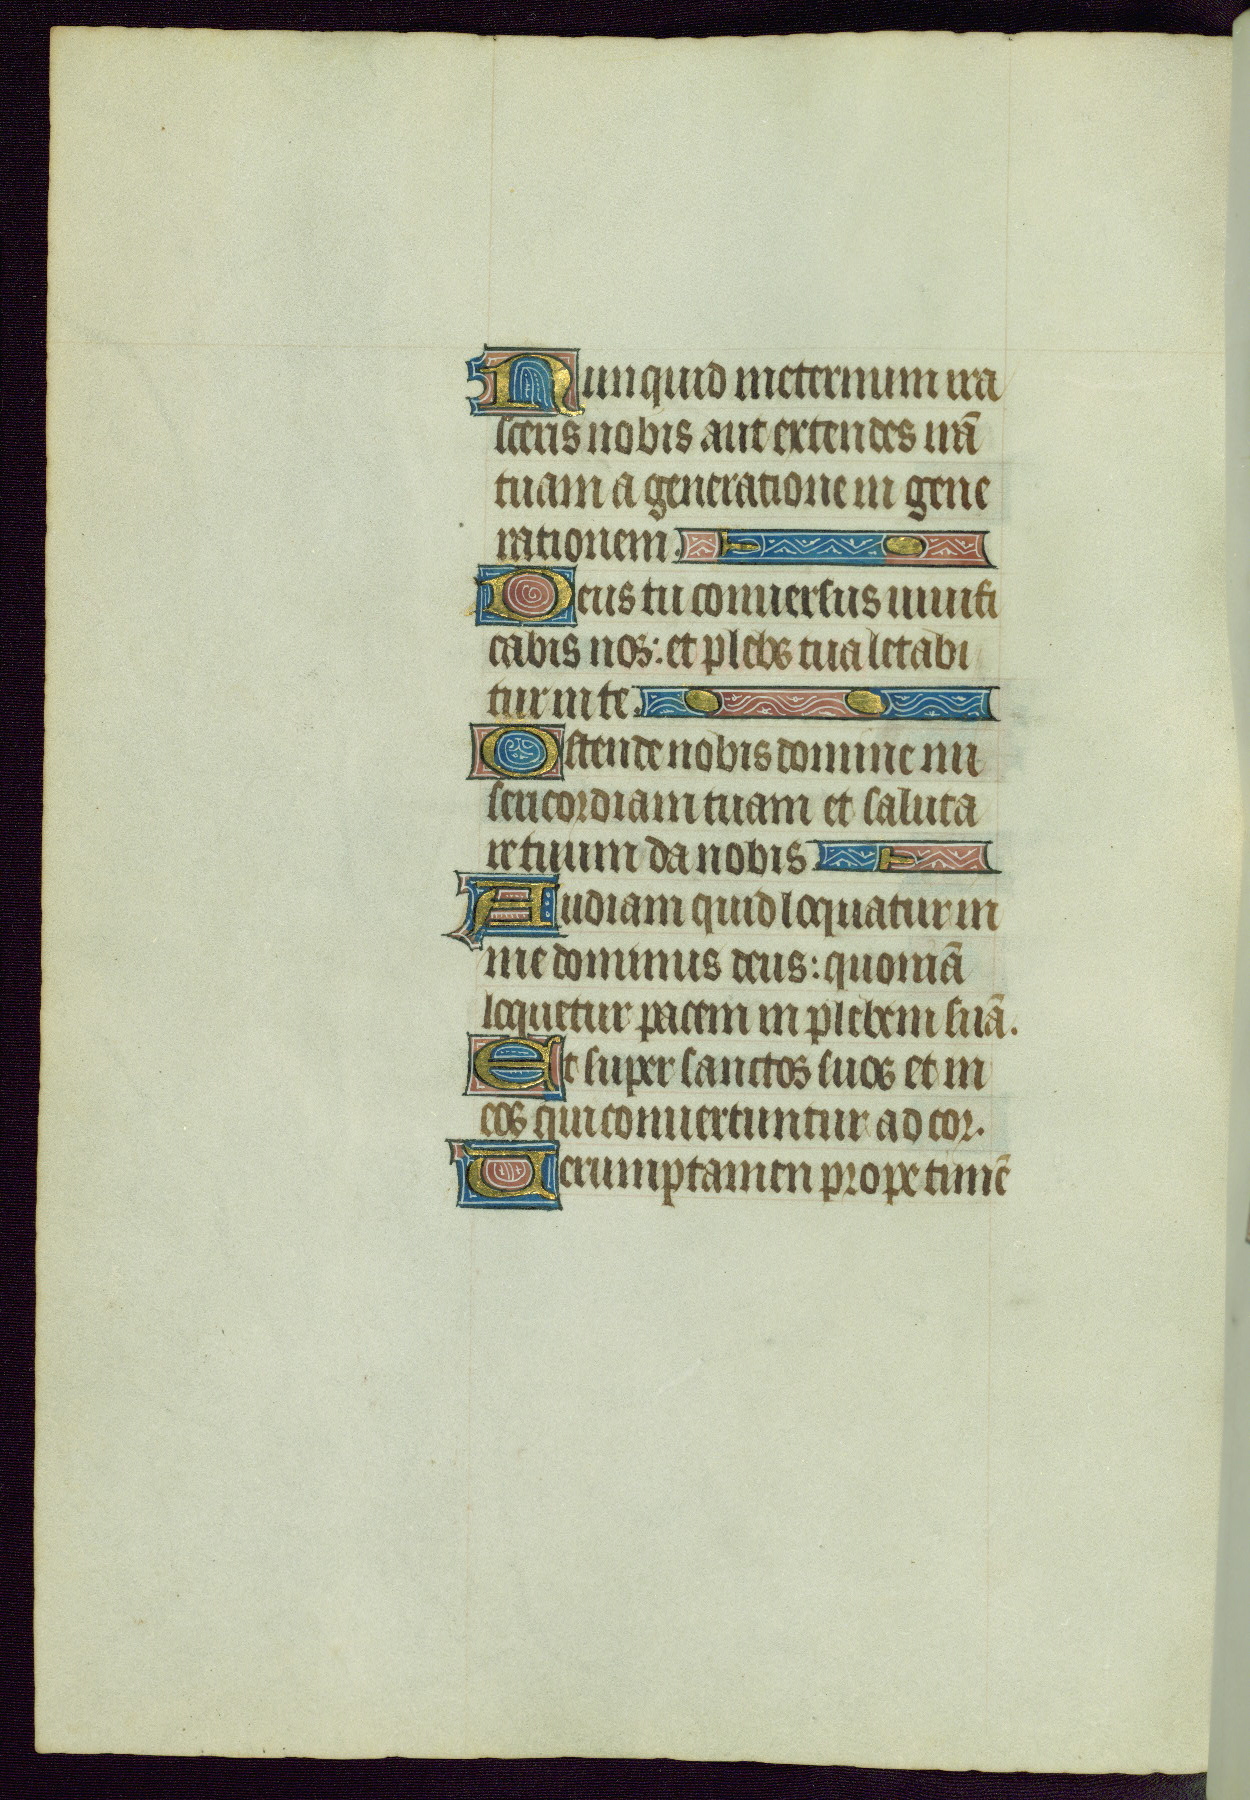 Nunquid ineternum ira
sceris nobis aut extendes irā
tuam a generatione in gene
rationem.
Deus tu conuersus uiuifi
cabis nos: et plebs tua letabi
tur in te.
Ostende nobis domine mi
sericordiam tuam et saluta
re tuum da nobis.
Audiam quid loquatur in
me dominus deus: quoniā
loquetur pacem in plebem suā.
Et super sanctos suos et in
eos qui conuertuntur ad cor.
Uerumptamen prope timē